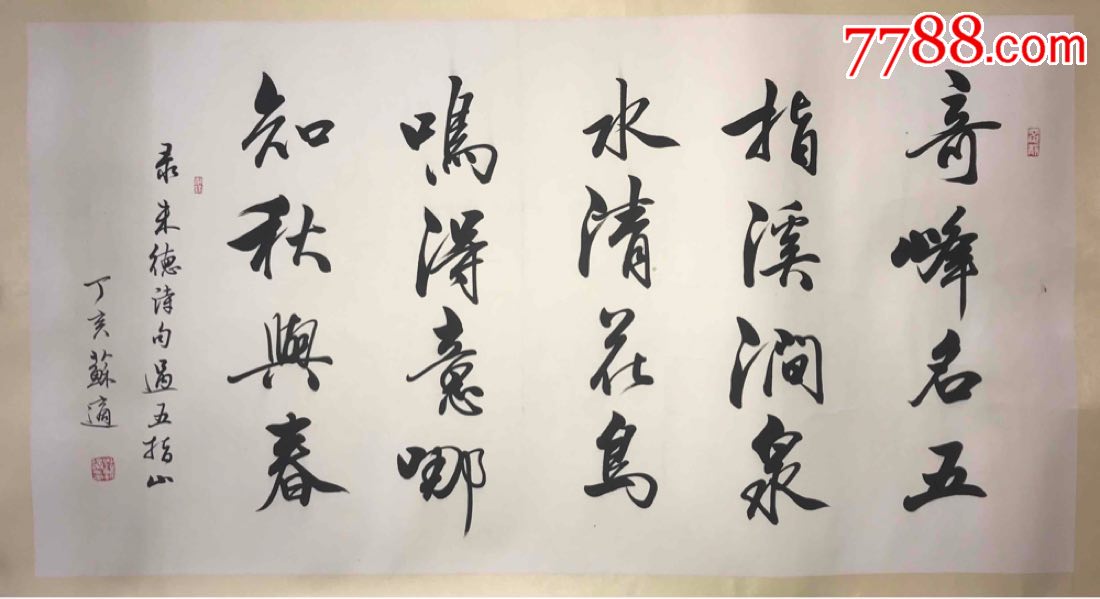 7788.com
奇峰名五
指溪澗泉
水清花鳥
鳴得意哪
知秋與春
录朱德诗句過五指山
丁亥蘇適